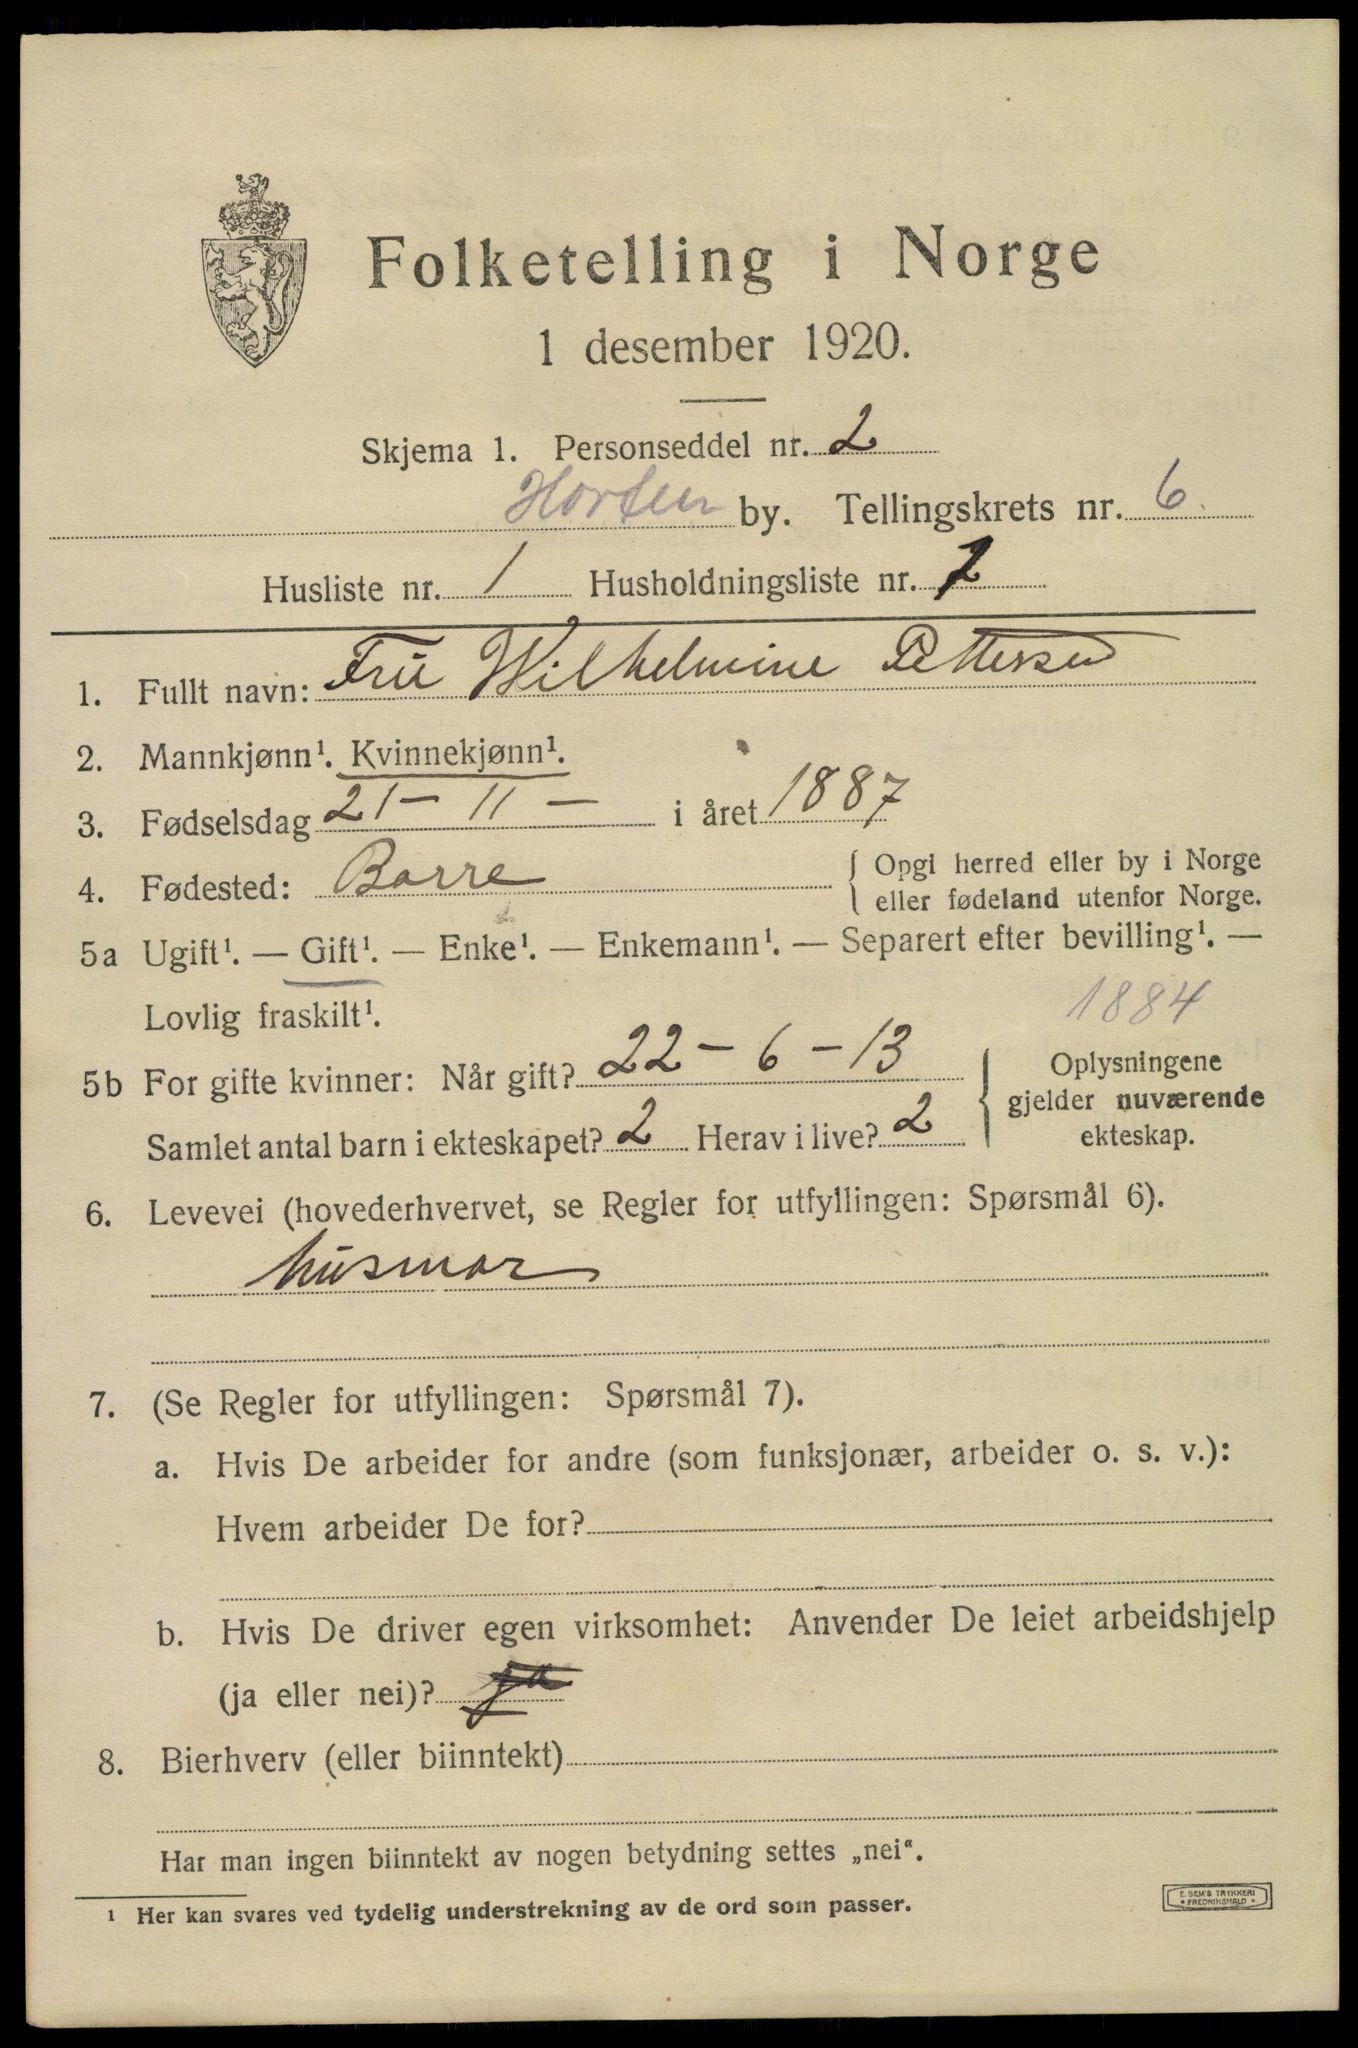 Folketelling i Norge
1 desember 1920.
Skjema 1. Personseddel nr. 2
Horten by. Tellingskrets nr. 6.
Husliste nr. 1 Husholdningsliste nr.
1. Fullt navn: Frü Wilhelmine Pettersen
2. Mannkjønn¹. Kvinnekjønn¹.
3. Fødselsdag 21 – 11 – i året 1887
4. Fødested: Borre { Opgi herred eller by i Norge
eller fødeland utenfor Norge.
5a Ugift¹. — Gift¹. — Enke¹. — Enkemann¹. — Separert efter bevilling¹. —
Lovlig fraskilt¹. 1884
5b For gifte kvinner: Når gift? 22 – 6 – 13
Samlet antal barn i ekteskapet? 2 Herav i live? 2
{ Oplysningene
gjelder nuværende
ekteskap.
6. Levevei (hovederhvervet, se Regler for utfyllingen: Spørsmål 6).
hüsmor
7. (Se Regler for utfyllingen: Spørsmål 7).
a. Hvis De arbeider for andre (som funksjonær, arbeider o. s. v.):
Hvem arbeider De for?
b. Hvis De driver egen virksomhet: Anvender De leiet arbeidshjelp
(ja eller nei)? ja
8. Bierhverv (eller biinntekt)
Har man ingen biinntekt av nogen betydning settes „nei“.
¹ Her kan svares ved tydelig understrekning av de ord som passer.
E. SEM'S TRYKKERI
• FREDRIKSHALD •